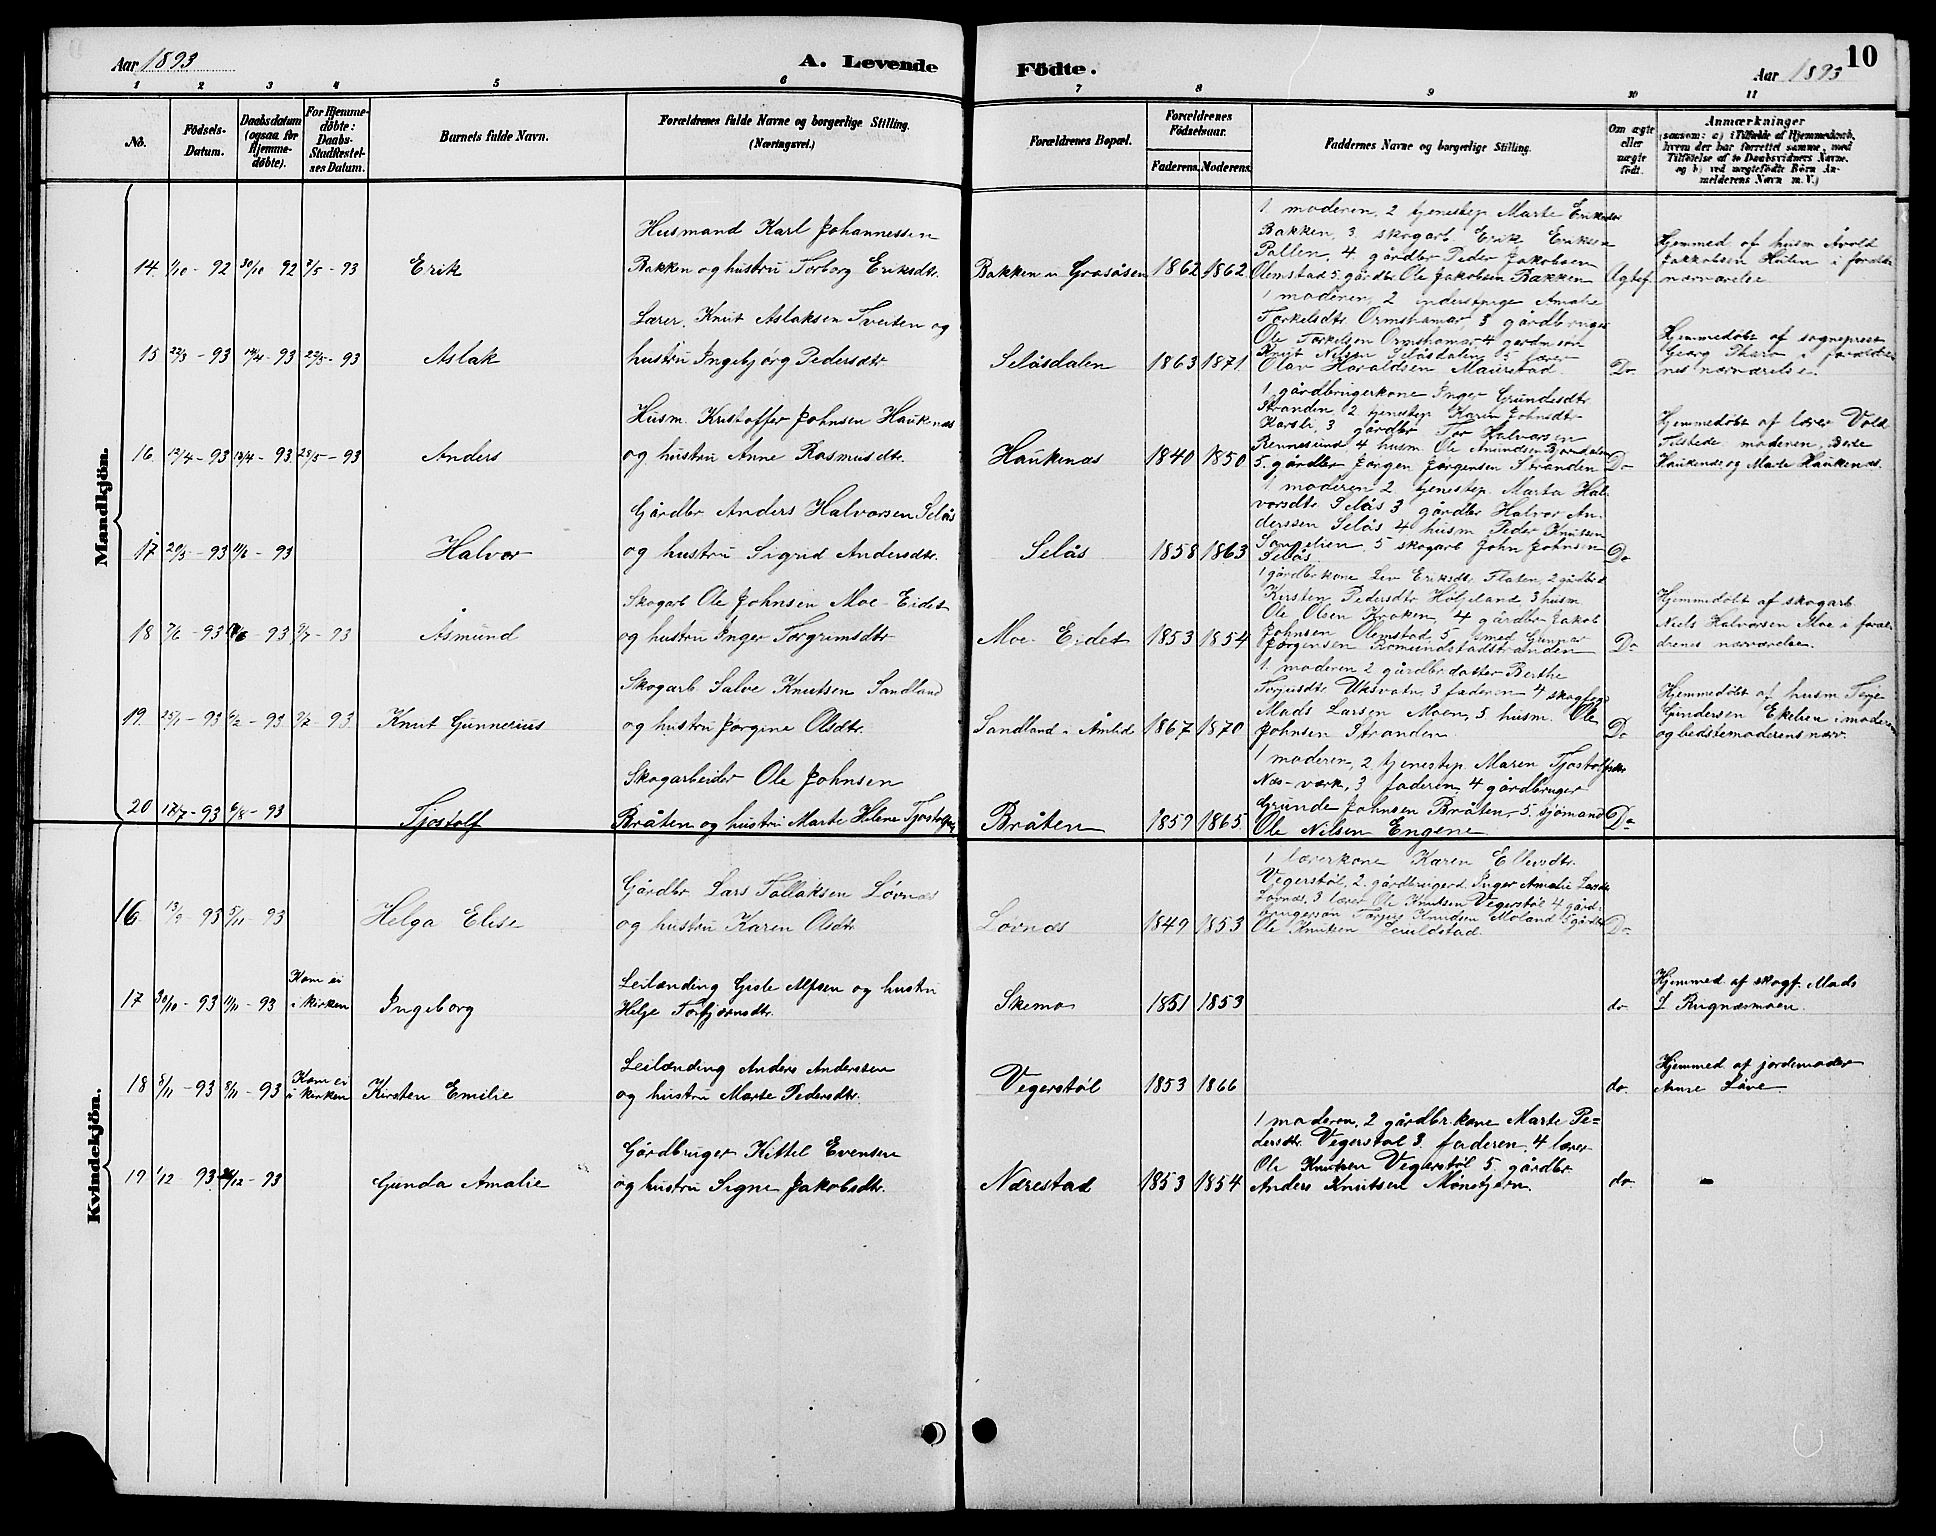 Aar 1893
A. Levende
Födte.
Aar 1893
10
1 2 3 4 5 6 7 8 9 10 11
No.
Födsels-
Datum.
Daabsdatum
(ogsaa for
Hjemme-
döbte).
For Hjemme-
døbte:
Daabs-
Stadfæstel-
ses Datum.
Barnets fulde Navn.
Forældrenes fulde Navne og borgerlige Stilling.
(Næringsvei.)
Forældrenes Bopæl.
Forældrenes
Födselsaar.
Faderens. Moderens.
Faddernes Navne og borgerlige Stilling.
Om ægte
eller
uægte
født.
Anmærkninger
(saasom: a) i Tilfælde af Hjemmedaab,
hvem der har forrettet samme, med
Tilföielse af to Daabsvidners Navne.
og b) ved uægtefödte Börn An-
melderens Navn m. V.)
Mandkjön.
14 1/10 - 92 30/10 92 2/5 - 93 Erik
Husmand Karl Johannessen
Bakken og hustru Torborg Eriksdtr.
Bakken u Grasåsen 1862 1862
1 moderen, 2 tjenestep. Marte Eriksdtr
Bakken, 3 skogarb. Erik Eriksen
Pallen, 4. gårdbr Peder Jakobsen
Olimstad 5. gårdbr Ole Jakobsen Bakken
Ægtef.
Hjemmed af husm Åvold
Jakkobsen Hulen i foreldre
nærværelse.
15 22/3 - 93 14/4 - 93 22/5 - 93 Aslak
Lærer. Knut Aslaksen Tveiten og
hustru Ingebjörg Pedersdtr.
Selåsdalen 1863 1871
1 moderen, 2 inderstpige Amalie
Torkelsdtr. Ormshamar, 3 gårdbruger
Ole Torkelsen Ormshamar 4 gardmsön
Knut Nilsen Selåsdalen, 5 lærer
Olav Haraldsen Maurstad.
Do.
Hjemmedøbt af sogneprest
Georg i forældre
nes nærværelse.
16 12/4 - 93 13/4 - 93 22/5 - 93 Anders
Husm. Kristoffer Johnsen Haukenæs
og hustru Anne Rasmusdtr.
Haukenæs 1840 1850
1 gårdbrugerkone Inger Grundesdtr
Stranden, 2 tjenestep. Karen Johnsdtr
3 gårdbr Tor Halvorsen
Rennesund, 4 husm Ole Amundsen
5. gårdbr Jørgen Jørgensen Stranden
Do
Hjemmedøbt af lærer Vold
Tilstede: moderen, Berte
Haukenæs og Marte Haukenæs.
17 20/5 - 93 11/6 - 93 Halvor
Gårdbr Anders Halvorsen Selås
og hustru Sigrid Andersdtr.
Selås 1858 1863
1 moderen 2 tjenestep. Marta Hal-
vorsdtr Selås 3 gårdbr Halvor An-
derssen Selås 4 husm Peder Knutsen
5 skogarb John Johnsen
Selås
Do
18 7/6 - 93 93 2/7 - 93 Åsmund
Skogarb Ole Johnsen Moe - Eidet
og hustru Inger Torgrimsdtr
Moe - Eidet 1853 1854
1 gårdbr.kone Liv Eriksdtr. Flaten, 2 gårdbr.d
Kirsten Pedersdtr Höljeland 3 husm
Ole Olsen Kroken, 4 gårdbr Jakob
Johnsen Olimstad, 5 smed Gunnar
Jørgensen Romundstadstranden
Do
Hjemmedøbt af skogarb
Niels Halvorsen Moe i foræl-
drenes nærværelse.
19. 25/1 - 93 6/2 - 93 9/7 - 93 Knut Gunnerius
Skogarb. Salve Knutsen Sandland
og hustru Jørgine Olsdtr.
Sandland i Åmlid 1867 1870
1. moderen 2 gårdbr.datter Berthe
Torjusdtr Uksvatn, 3 faderen 4 skogfog
Mads Larsen Moen, 5 husm. Ole
Johnsen Stranden
Do
Hjemmedøbt af husm Terje
Gundersen Ekelien i moderen
og bedstemoderens nærv.
20 17/7 - 93 6/8 - 93 Tjostolf
Skogarbeider Ole Johnsen
Bråten og hustru Marte Helene
Bråten 1859 1865
1 moderen, 2 tjenestep. Maren
Næs-værk, 3 faderen 4 gårdbruger
Grunde Johnsen Bråten, 5. sjømand
Ole Nilsen Engene
Do
Kvindekjön.
16 13/9 93 5/11 - 93 Helga Elise
Gårdbr. Lars Tallaksen Løvnæs
og hustru Karen Olsdtr
Løvnæs 1849 1853
1 lærerkone Karen Ellevsdtr.
Vegerstøl, 2. gårdbrugerd. Inger Amalie Larsdtr
Løvnæs, 3 lærer Ole Knutsen Vegerstøl 4 gård-
brugersøn Torjus Knudsen Moland 5 gårdbr
Ole Knutsen
Do
17 30/10 - 93 11/11 - 93 Kom ei
i kirken Ingeborg
Leilænding Gisle Alfsen og hustru
Helje Torbjørnsdtr.
Skemo 1851 1853
do.
Hjemmed af skogf. Mads
L Rugnæsmoen.
18 8/11 - 93 8/11 - 93 Kom ei
i kirken Kirsten Emilie
Leilænding Anders Anderssen
og hustru Marte Pedersdtr.
Vegerstøl 1853 1866
do.
Hjemmed af jordemoder
Anne Låve.
19 1/12 93. 26/12 - 93 Gunda Amalie
Gårdbruger Kittel Evensen
og hustru Signe Jakobsdtr.
Nærestad 1853 1854
1 moderen, 2 gårdbr.kone Marte Pe-
dersdtr. Vegerstøl 3. faderen, 4 lærer
Ole Knutsen Vegerstøl 5. gårdbr
Anders Knutsen Mønstjøn.
do. -